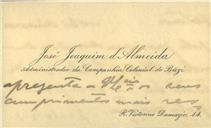 José Joaquim d'Almeida
Administrador da Companhia Colonial do Buzi
apresenta a V. Ex.ia os seus
cumprimentos mais
R. Victorino Damazio, 14